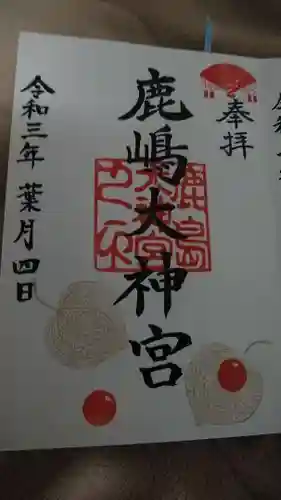 奉拝
鹿嶋大神宮
令和三年 葉月四日